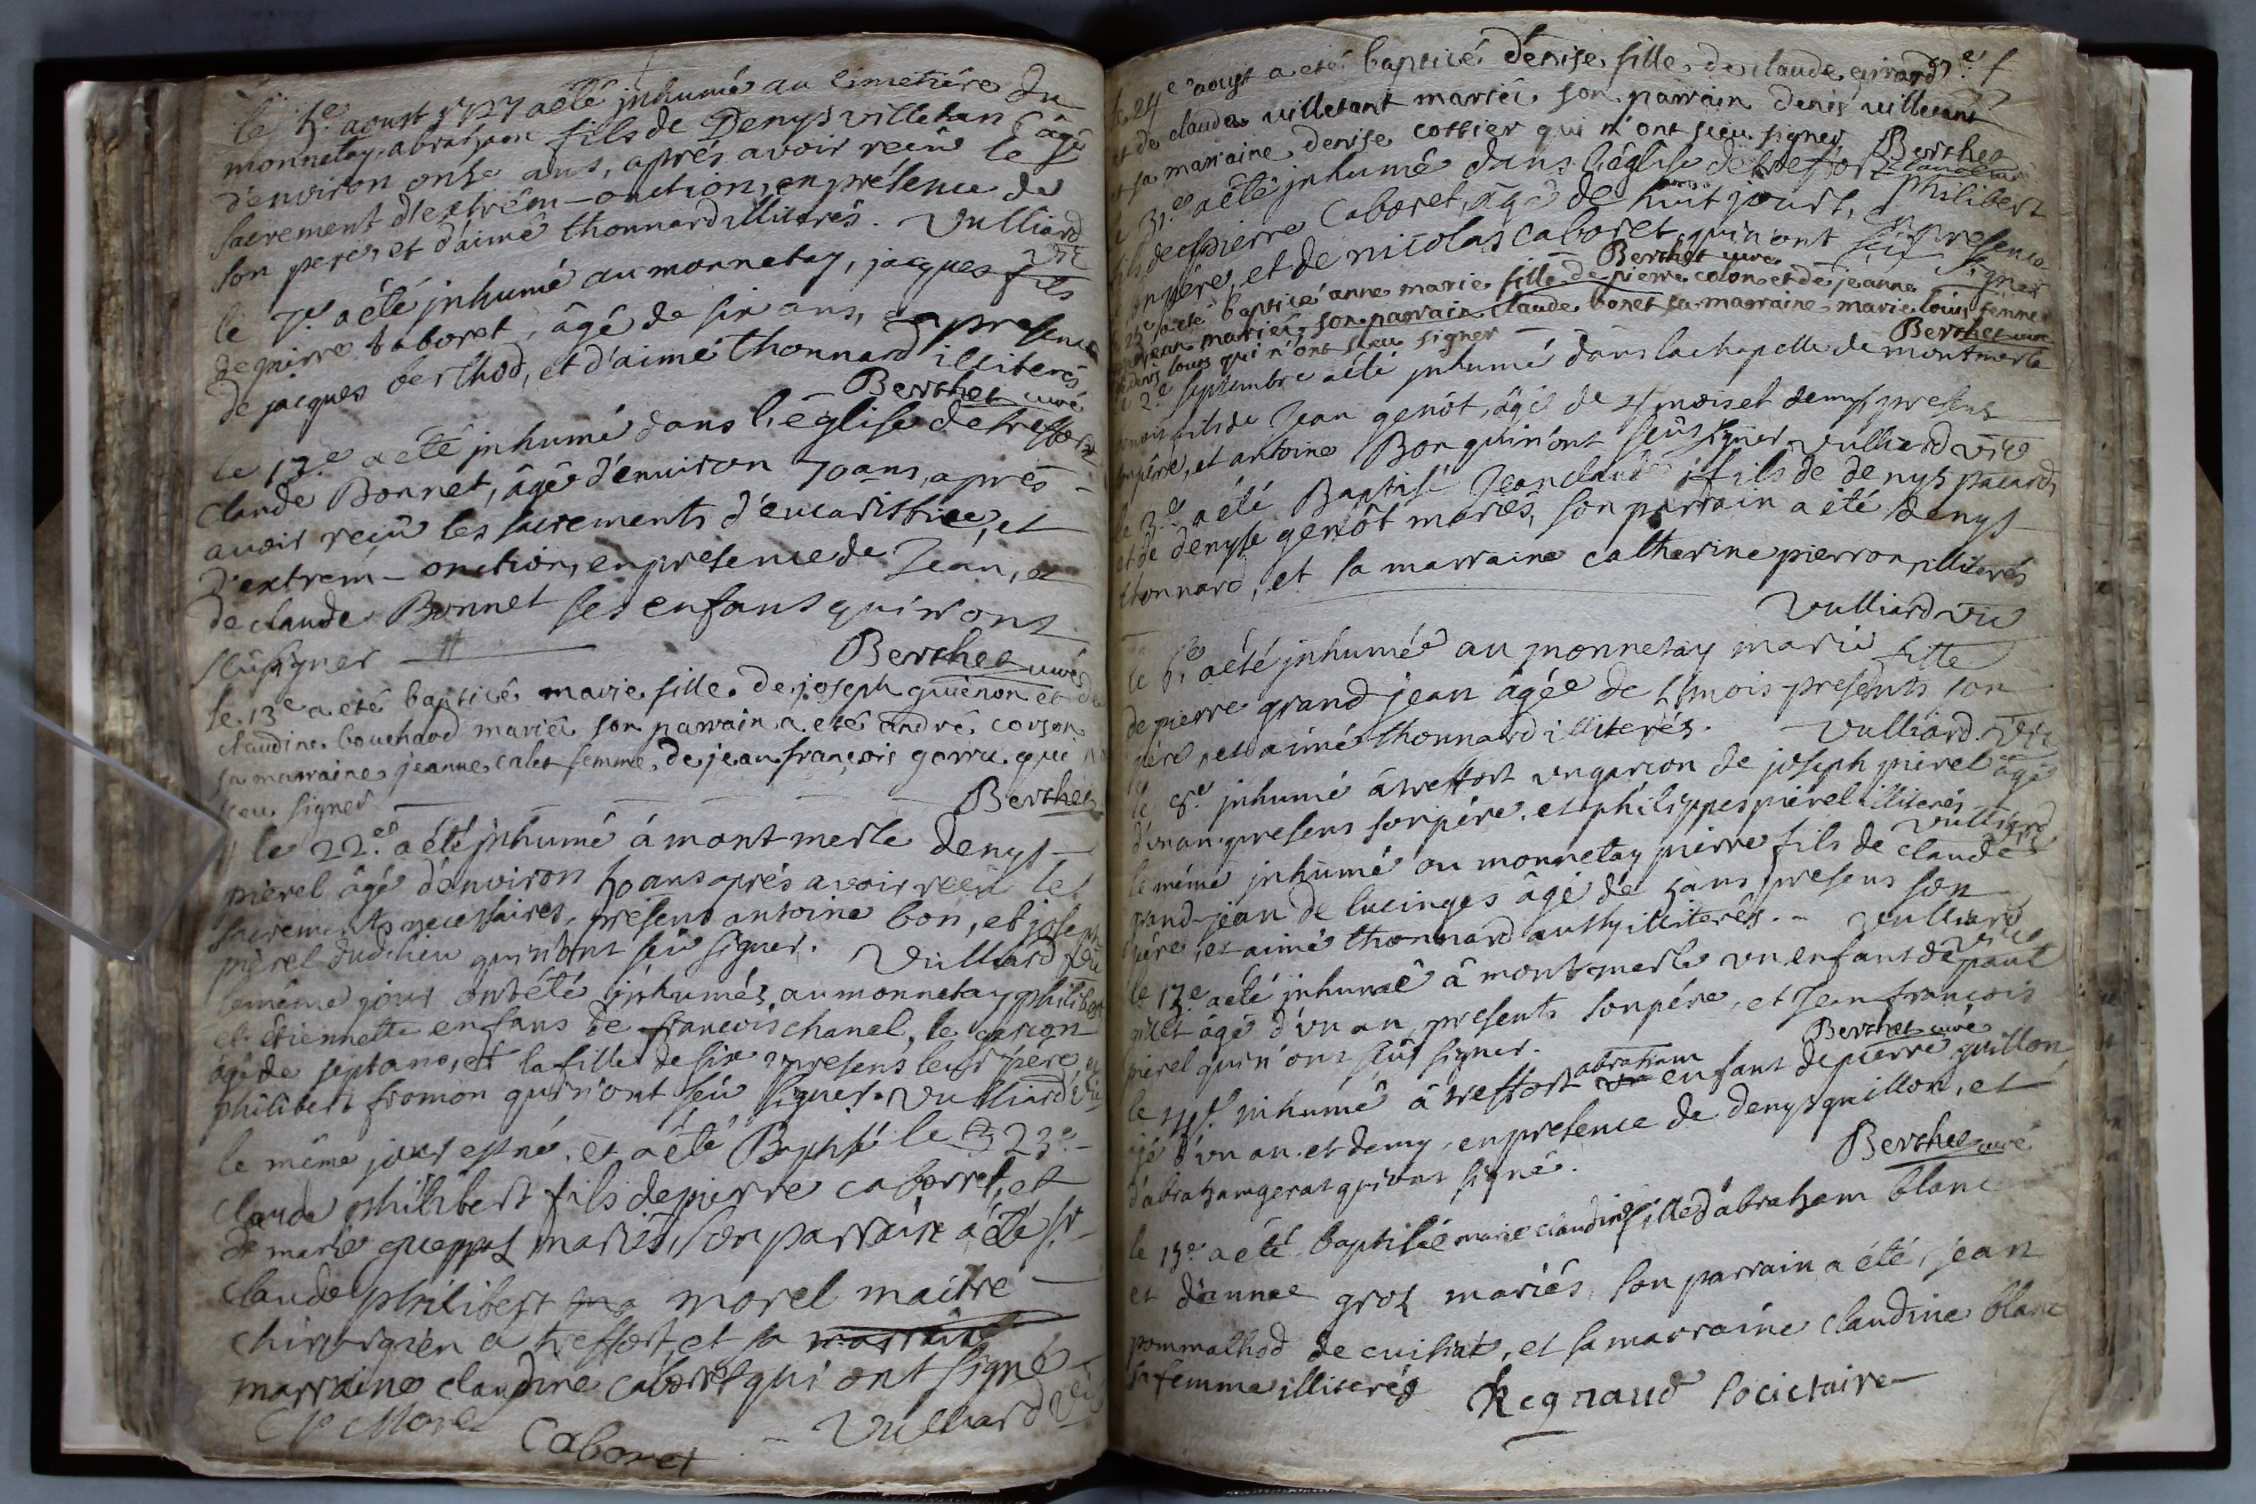 le 5.e aoust 1727 a eté jnhumé au cimetiére du
monnetay abraham fils de Denys villetan âgé
d'environ onse ans, aprés avoir reçû le
sacrement d'extrém-onction, en présence de
son pere, et d'aimé thonnard illiterés. Vulliard
vic
le 7.e a été jnhumé au monnetay, jacques fils
de pierre Caboret, âgé de six ans, en presence
de jacques berthod, et d'aimé thonnard illiterés
Berthet curé
le 13.e a été jnhumé dans l'église de treffort
claude Bonnet, âgé d'environ 70 ans, aprés
avoir reçû les sacrements d'eucaristhie, et
d'extrem-onction, en presence de Jean, et
de claude Bonnet ses enfans qui n'ont
sçû signer
Berthet curé
le 13e a eté baptisé marie fille de joseph guénon et de
claudine bouchard mariés son parrain a eté andré corson
sa marraine jeanne calet femme de jean françois gorru que
sceu signer
Berthet
le 22.e a été jnhumé á mont-merle denys
pierel âgé d'environ 50 ans aprés avoir reçû les
sacrements necessaires, présens antoine bon, et joseph
pierel dudt lieu qui n'ont sçû signer. Vulliard vic
le même jour ont été jnhumés au monnetay philibert
et étiennette enfans de françois chanel, le garçon
âgé de sept ans, et la fille de six presens leur pére, et
philibert fromon qui n'ont sçû signer. Vulliard vic
le même jour est né, et a été Baptisé le 23e
claude philibert fils de pierre caborret, et
de marie gueppes mariés, son parrain a été sr
claude philibert ma morel maitre
chirurgien a treffort, et sa marraine
marraine claudine Caboret qui ont signé
Cp Morel Vulliard vic
Caboret
le 24e aoust a eté baptisé denise fille de claude girard
et de claude villetant mariés son parrain denis villetant
et sa marraine denise cottier qui n'ont sceu signer Berthet
le 31.e a été jnhumé dans l'église de treffort philibert
fils de pierre Caboret, âgé de huit jours, en presence
de son pére, et de nicolas caboret qui n'ont sçû signer
Berthet curé
le 25 a eté baptisé anne marie fille de pierre colon et de jeanne
mariés son parrain claude bonet sa marraine marie louis femme
de denis louis qui n'ont sceu signer Berthet curé
le 2.e septembre a été jnhumé dans la chapelle de montmerle
fils de Jean genôt, âgé de 4 mois et demy, presens
son pére, et antoine Bon qui n'ont sçûs signer Vulliard vic
le 3.e a été Baptisé Jean claude fils de denys pacard,
et de denyse genôt mariés, son parrain a été denys
thonnard, et la marraine catherine pierron illiterés
Vulliard vic
le 6.e a été jnhumée au monnetay marie fille
de pierre grand jean âgée de 5 mois presents son
pére et aimé thonnard illiterés. Vulliard vic
le 8.e jnhumé á treffort un garçon de joseph pierel âgé
d'un an presens son pére, et philippes pierel illiterés
Vulliard
le méme jnhumé au monnetay pierre fils de claude
grand-jean de lucinges âgé de 5 ans presens son
pére, et aimé thonnard aussy illiterés. Vulliard
vic
le 13.e a été jnhumé â montmerle un enfant de paul
gillet âgé d'un an, presents son pére, et Jean françois
pierel qui n'ont sçû signer. Berthet curé
le 14.e jnhumé â treffort abraham un enfant de pierre guillon
âjé d'un an et demy, en presence de denys guillon, et
d'abraham geras qui ont signé. Berthet curé
le 15e a été baptisée marie claudine fille d'abraham blanc
et d'anne gros mariés, son parrain a été, jean
pommathod de cuisiat, et sa marraine claudine blanc
sa femme illiterés Regnaud societaire